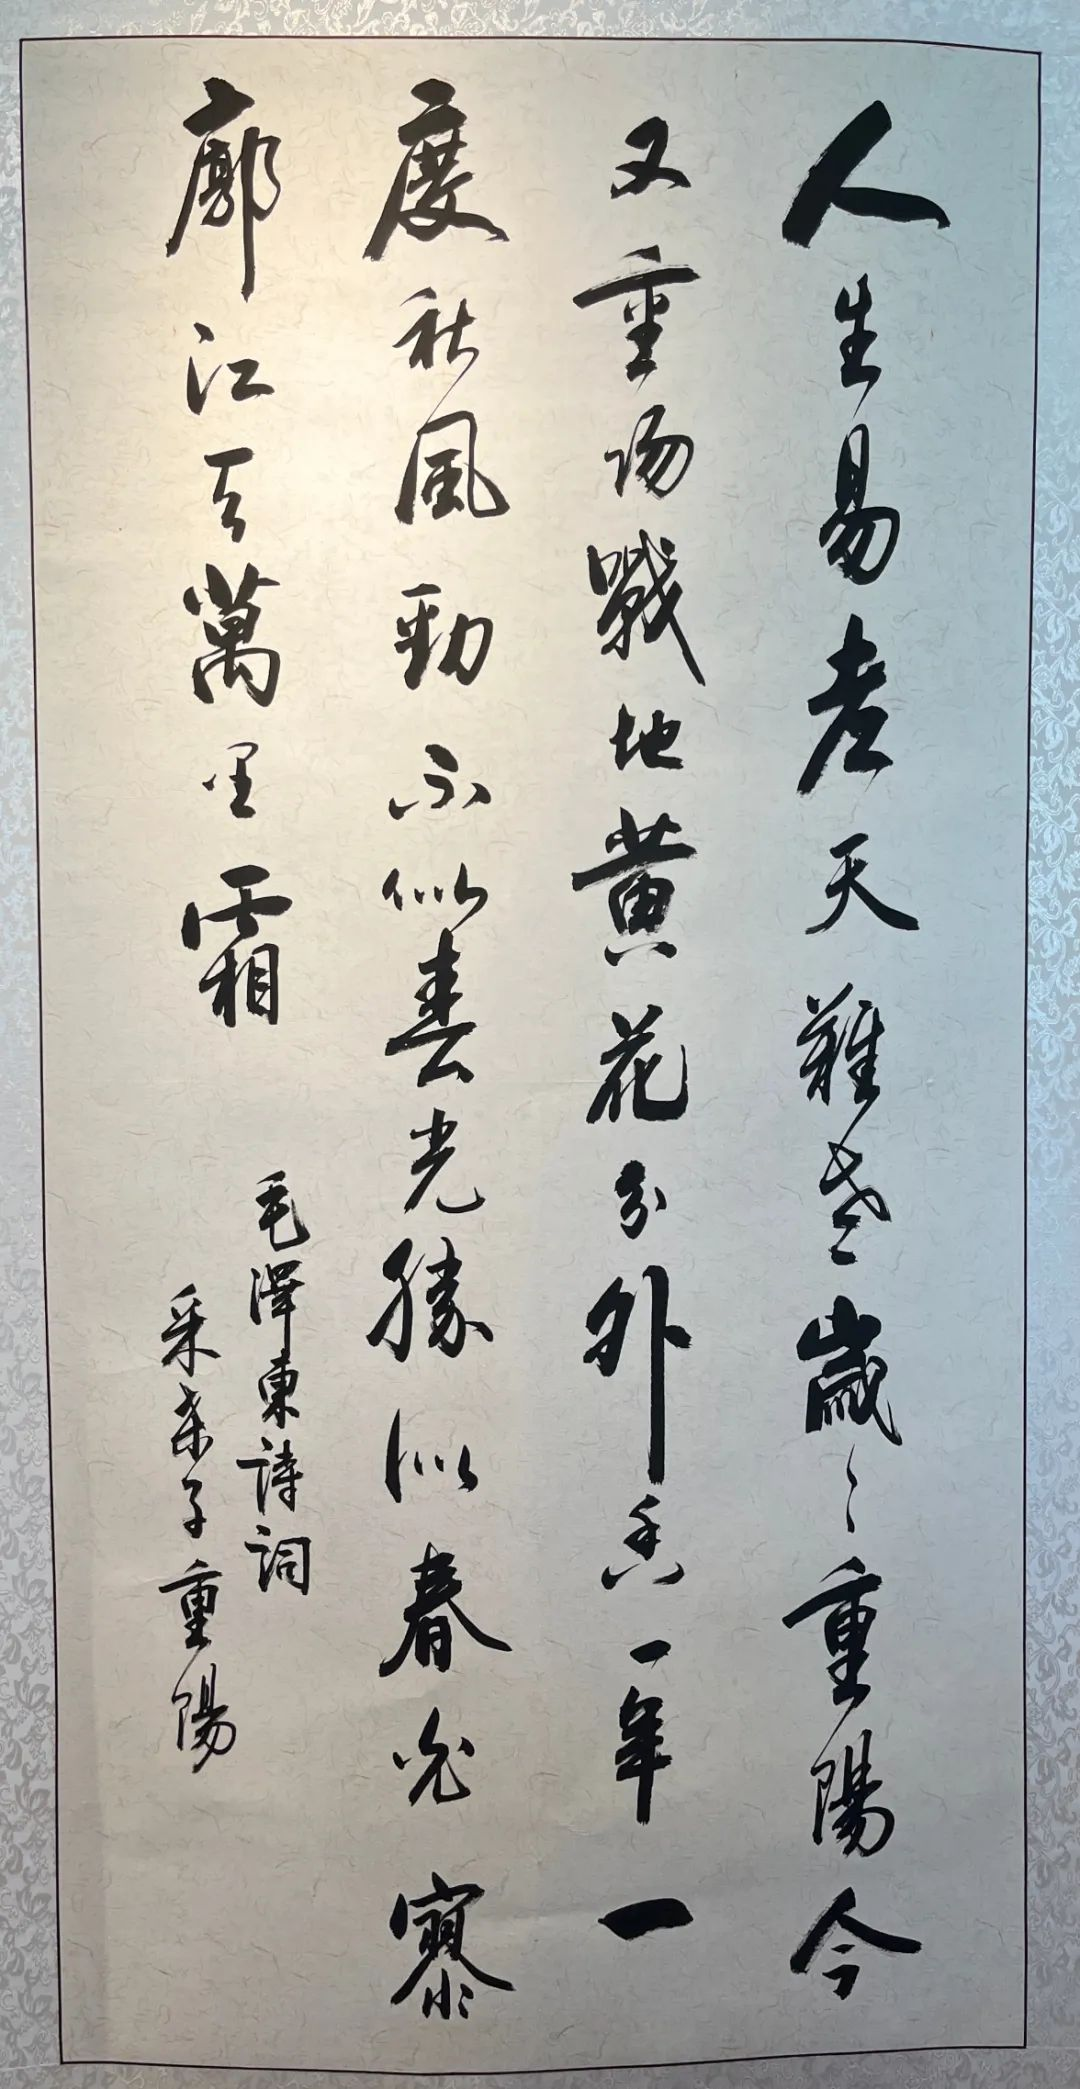 人生易老天難老歲々重陽今
又重陽戰地黄花分外香一年一
度秋風勁不似春光勝似春光寥
廓江天萬里霜
毛澤東詩詞
采桑子重陽